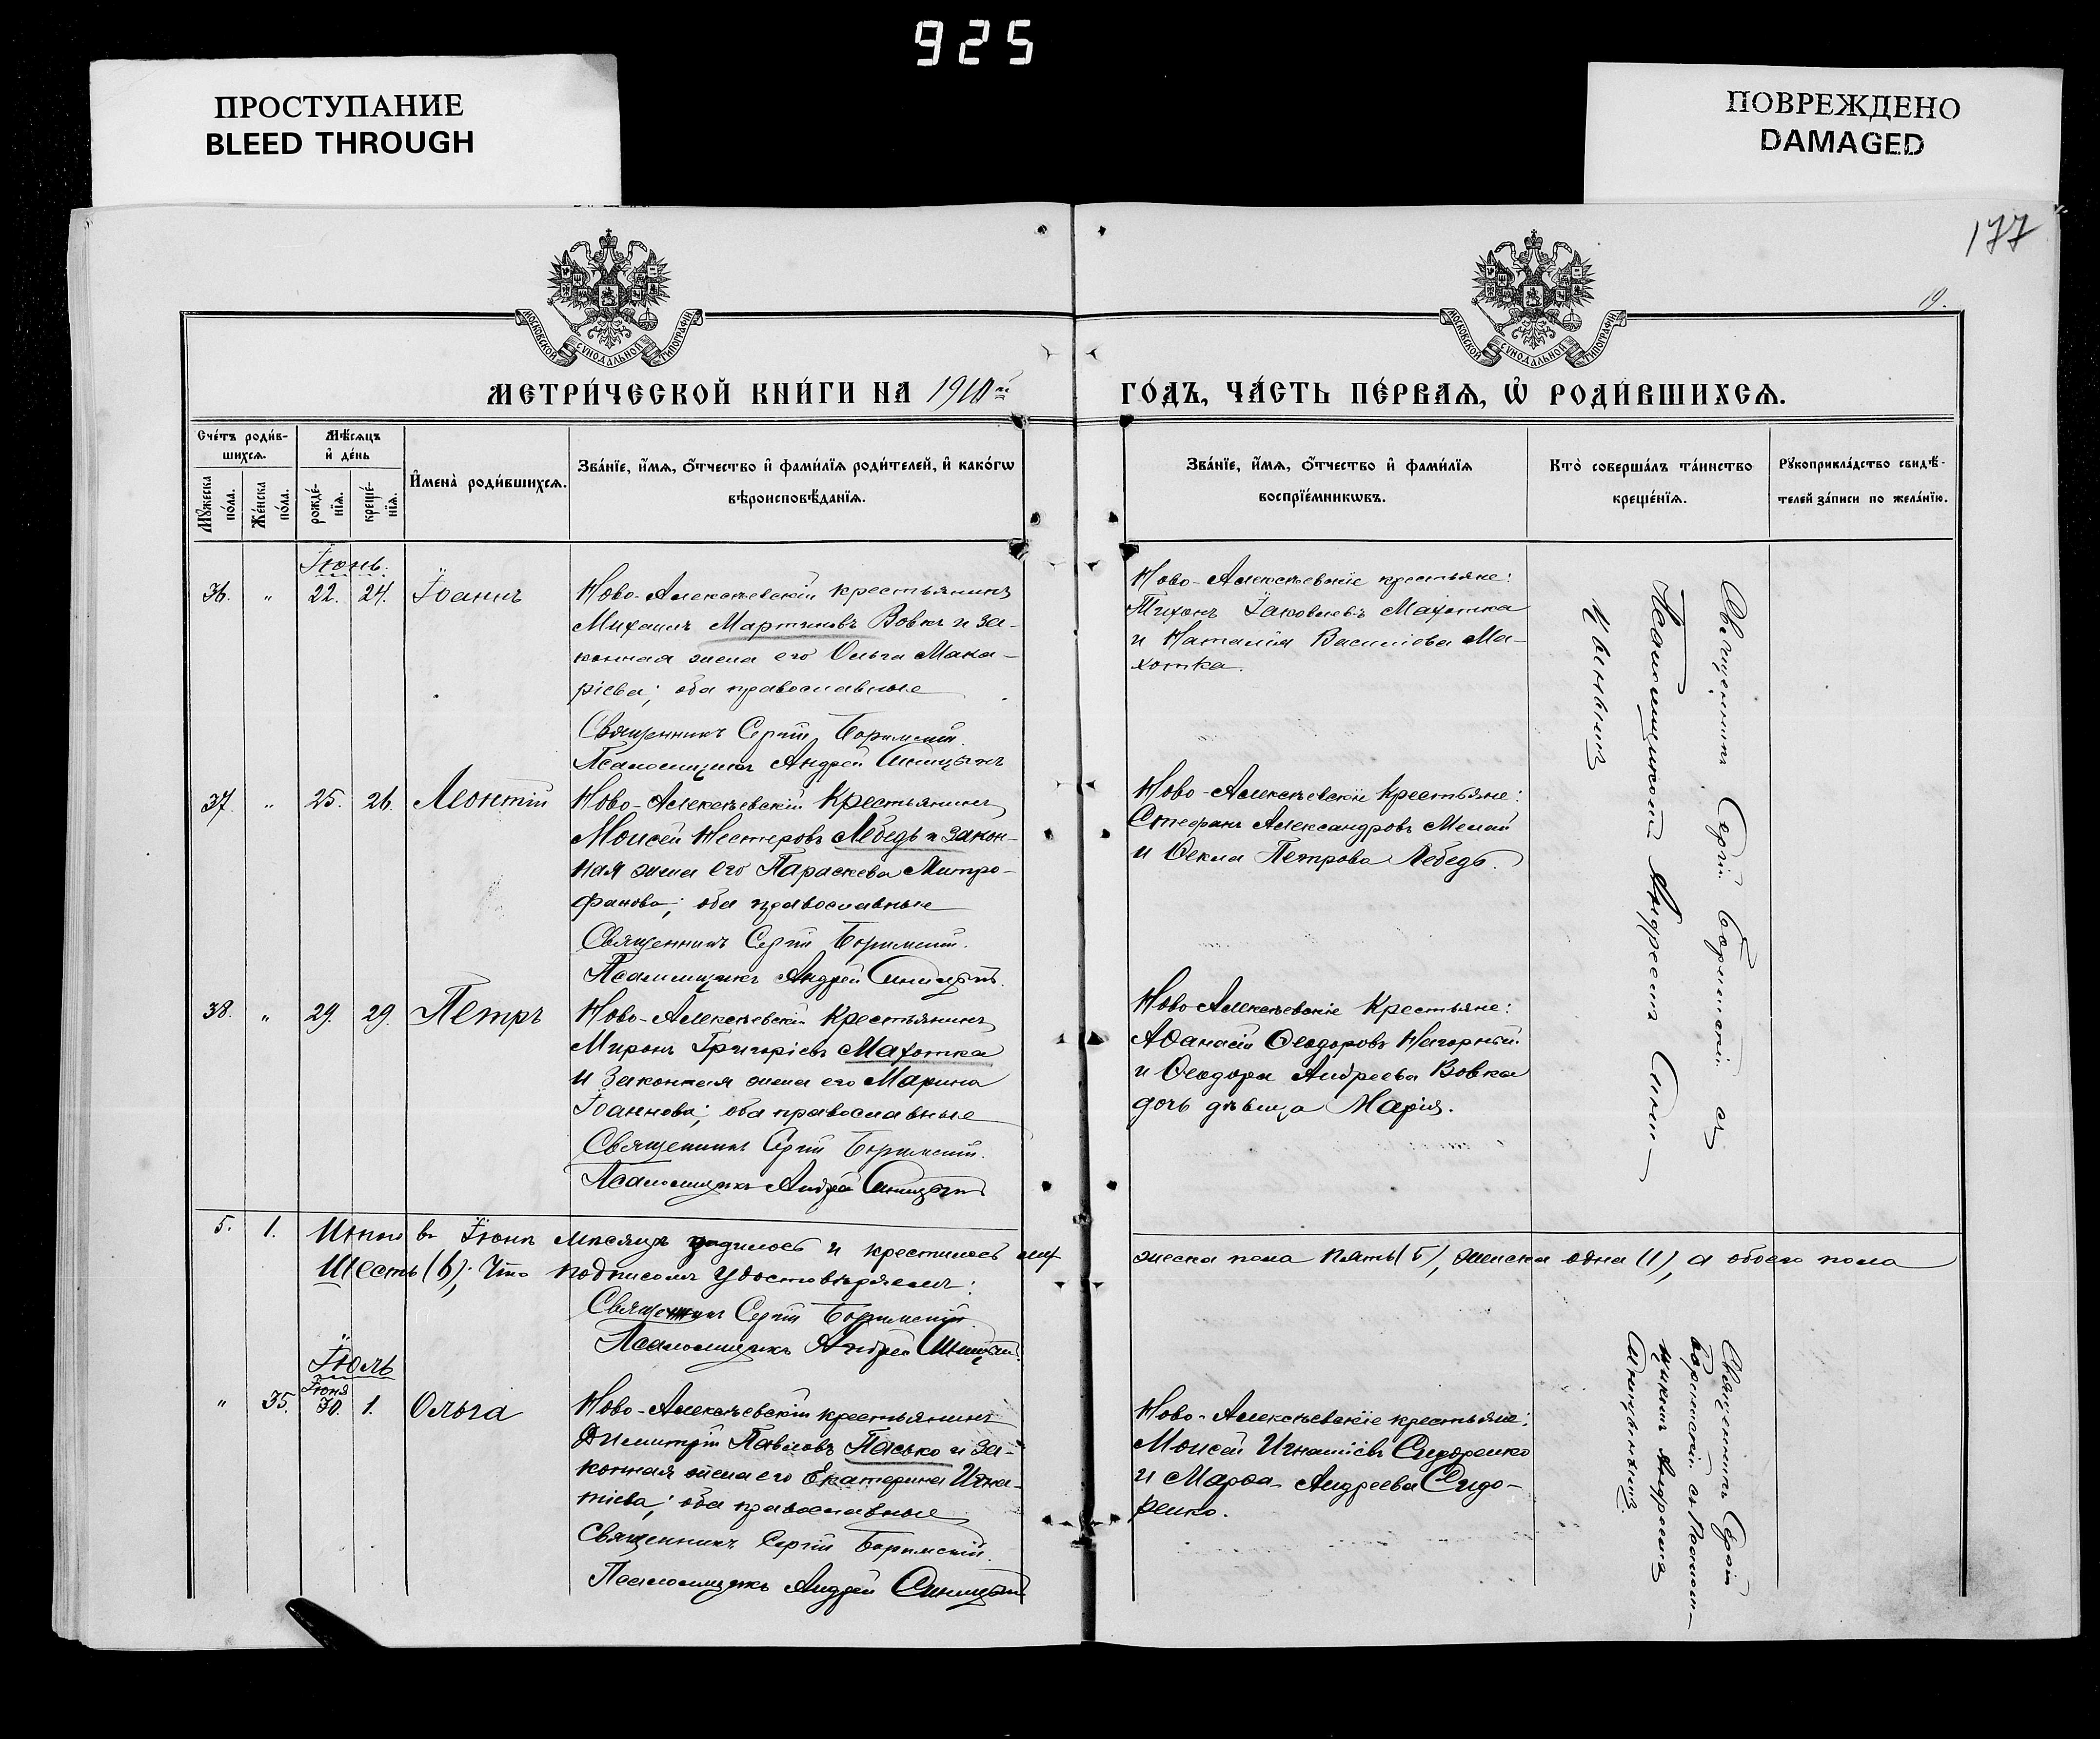 925
ПРОСТУПАНИЕ
BLEED THROUGH
ПОВРЕЖДЕНО
DAMAGED
177
19.
МОСКОВСКОЙ СѴНОДАЛЬНОЙ ТИПОГРАФІИ
МОСКОВСКОЙ СѴНОДАЛЬНОЙ ТИПОГРАФІИ
МЕТРИ́ЧЕСКОЙ КНИ́ГИ НА 1910й
ГО́ДЪ, ЧА́СТЬ ПЕ́РВАѦ, Ѡ҆ РОДИ́ВШИХСѦ.
Сче́тъ роди́в-
шихсѧ.
Мꙋ́жеска по́ла.
Же́нска по́ла.
Мѣ́сѧцъ
и҆ де́нь
рожде́-нїѧ.
креще́-нїѧ.
И҆мена̀ роди́вшихсѧ.
Зва́нїе, и҆́мѧ, ѻ҆́тчество и҆ фами́лїѧ роди́телей, и҆ како́гѡ
вѣроисповѣ́данїѧ.
Зва́нїе, и҆́мѧ, ѻ҆́тчество и҆ фами́лїѧ
воспрїе́мникѡвъ.
Кто̀ соверша́лъ та́инство
креще́нїѧ.
Рꙋкоприкла́дство свидѣ́-
телей за́писи по жела́нїю.
Іюнь.
36. " 22. 24. Іоаннъ
Ново-Алексѣевскій крестьянинъ
Михаилъ Мартиновъ Вовкъ и за-
конная жена его Ольга Мака-
ріева; оба православные
Священникъ Сергій Боримскій.
Псаломщикъ Андрей Синицынъ
Ново-Алексѣевскіе крестьяне:
Тихонъ Іаковлевъ Махотка
и Наталія Василіева Ма-
хотка.
Священникъ Сергій Боримскій съ
Псаломщикомъ Андреемъ Сини-
цынымъ
37. " 25. 26. Леонтій
Ново-Алексѣевскій Крестьянинъ
Моисей Нестеровъ Лебедь и закон-
ная жена его Параскева Митро-
фанова; оба православные
Священникъ Сергій Боримскій.
Псаломщикъ Андрей Синицынъ.
Ново-Алексѣевскіе Крестьяне:
Стефанъ Александровъ Мелай
и Ѳекла Петрова Лебедь.
38. " 29. 29. Петръ
Ново-Алексѣевскій Крестьянинъ
Миронъ Григоріевъ Махотка
и Законная жена его Марина
Іоаннова; оба православные
Священникъ Сергій Боримскій.
Псаломщикъ Андрей Синицынъ
Ново Алексѣевскіе Крестьяне:
Аѳанасій Ѳеодоровъ Нагорный
и Ѳеодора Андреева Вовка
дочь дѣвица Марія.
5. 1. Итого въ Іюнѣ мѣсяцѣ родилось и крестилось му
жеска пола пять (5), женска одна (1), а обоего пола
Шесть (6); Что подписомъ удостовѣряемъ:
Священникъ Сергій Боримскій.
Псаломщикъ Андрей Синицынъ.
Іюль
Іюня
" 35. 30. 1. Ольга
Ново-Алексѣевскій крестьянинъ
Димитрій Павловъ Пасько и за-
конная жена его Екатерина Игна-
тіева; оба православные
Священникъ Сергій Боримскій.
Псаломщикъ Андрей Синицынъ
Ново-Алексѣевскіе крестьяне:
Моисей Игнатіевъ Сидоренко
и Марѳа Андреева Сидо-
ренко.
Священникъ Сергій
Боримскій съ Псалом-
щикомъ Андреемъ
Синицынымъ.